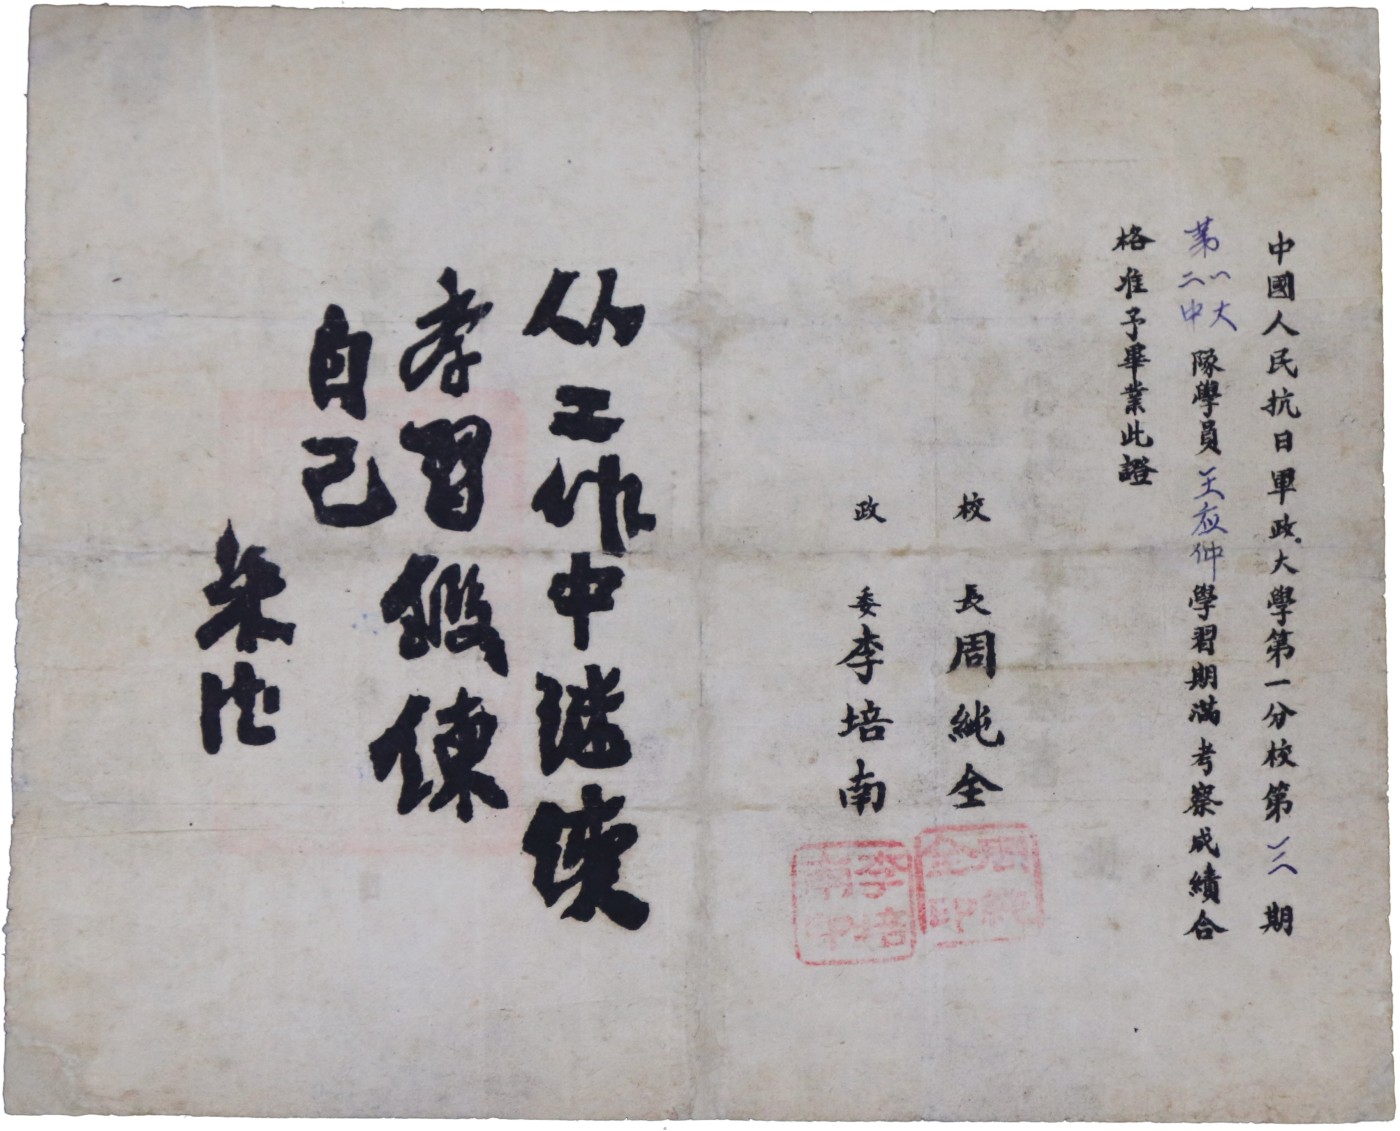 中國人民抗日軍政大學第一分校第三期
第一大
二中
隊學員王应仲學習期滿考察成績合
格准予畢業此證
校長周純全
政委李培南
周純全印
李培南印
从工作中继续
孝習鍛鍊
自己
朱德